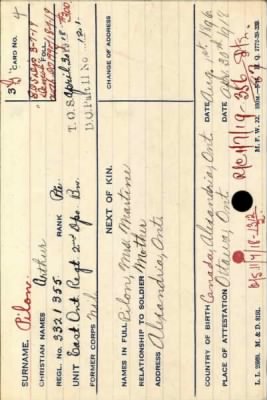 SURNAME, Pilon
CARD NO.
CHRISTIAN NAMES Arthur
REGL. NO. 3321355 RANK Pte
UNIT East Ont Regt 2nd Dps Bn.
FORMER CORPS Nil
T.O.S. April 30th 18
D.O. Part II No 121
CHANGE OF ADDRESS
NEXT OF KIN.
NAMES IN FULL Pilon, Mrs Martine
RELATIONSHIP TO SOLDIER Mother
ADDRESS Alexandria, Ont.
COUNTRY OF BIRTH Canada, Alexandria, Ont. DATE Aug 1st 1896
PLACE OF ATTESTATION Ottawa, Ont. DATE Apr 30th 1918
L. L. M. & D. 9281.
M. F. W. 22.